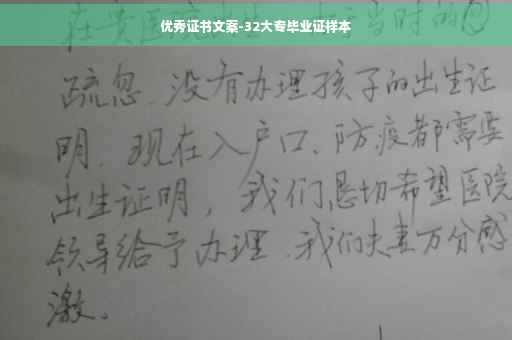 优秀证书文案-32大专毕业证样本
在贵医院出生，由于当时的
疏忽、没有办理孩子的出生证
明、现在入户口、防疫都需要
出生证明，我们恳切希望医院
领导给予办理、我们夫妻万分感
激。